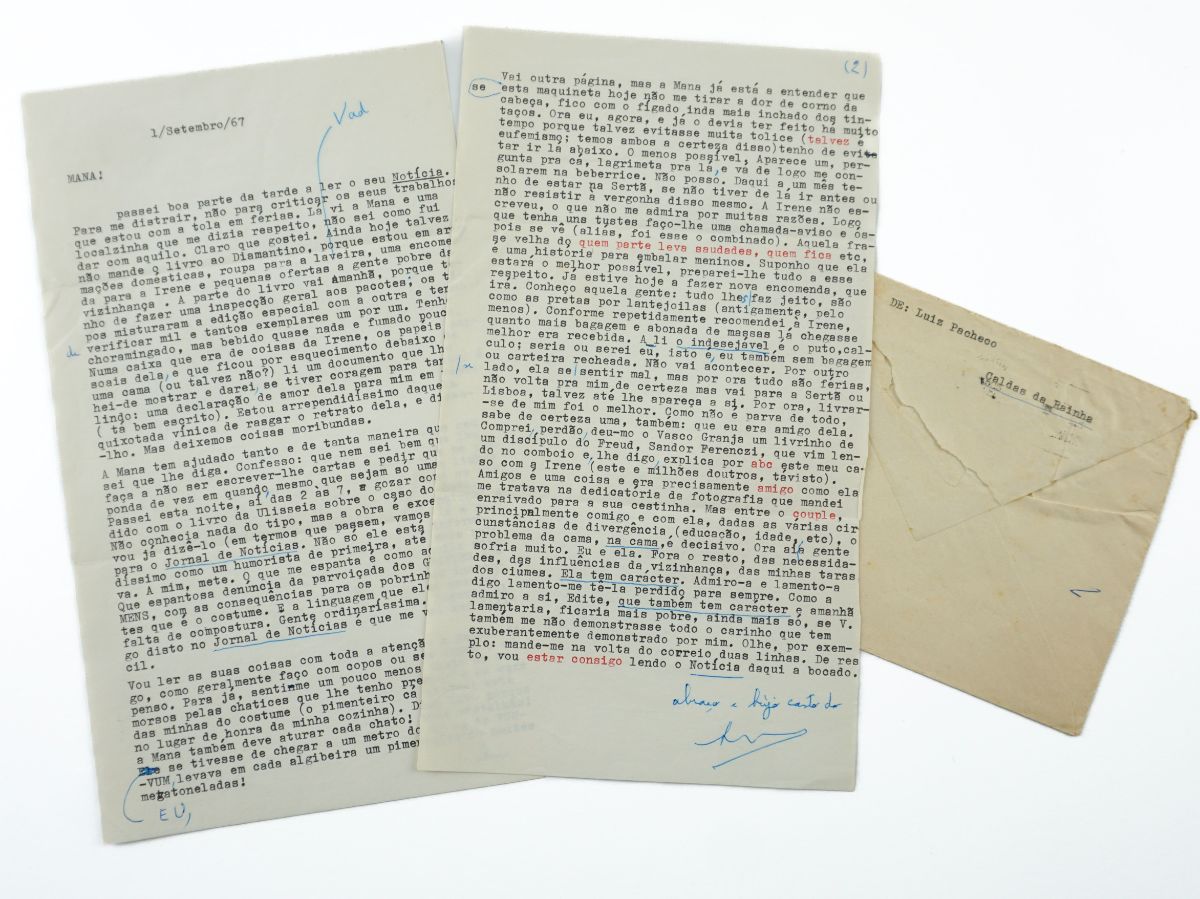 1/Setembro/67
Vad
MANA!
passei boa parte da tarde a ler o seu Notícia.
Para me distrair, não para criticar os seus trabalhos
que estou com a tola em férias. Lá vi a Mana e uma
localzinha que me dizia respeito, não sei como fui
dar com aquilo. Claro que gostei. Ainda hoje talvez
não mande o livro ao Diamantino, porque estou em ar
mações domésticas, roupa para a laveira, uma encome
da para a Irene e pequenas ofertas a gente pobre da
vizinhança. A parte do livro vai amanhã, porque t
nho de fazer uma inspecção geral aos pacotes; os t
pos misturaram a edição especial com a outra e ter
verificar mil e tantos exemplares um por um. Tenho
de choramingado, mas bebido quase nada e fumado pouc
Numa caixa que era de coisas da Irene, os papéis
scais dela, e que ficou por esquecimento debaixo
uma cama (ou talvez não?) li um documento que lh
hei-de mostrar e darei, se tiver coragem para tan
lindo: uma declaração de amor dela para mim em
( tá bem escrito). Estou arrependidíssimo daque
quixotada vínica de rasgar o retrato dela, e di
-lho. Mas deixemos coisas moribundas.
A Mana tem ajudado tanto e de tanta maneira qu
sei que lhe diga. Confesso: que nem sei bem qu
faça a não ser escrever-lhe cartas e pedir qu
ponda de vez em quando, mesmo que sejam só uma
Passei esta noite, aí das 2 às 7, a gozar con
dido com o livro da Ulisseia sobre o caso do
Não conhecia nada do tipo, mas a obra é exce
vou já dizê-lo (em termos que passem, vamos
para o Jornal de Notícias. Não só ele está
díssimo como um humorista de primeira, até
va. A mim, mete. O que me espanta é como ac
Que espantosa denúncia da parvoiçada dos G
MENS, com as consequências para os pobrinh
tes que é o costume. E a linguagem que el
falta de compostura. Gente ordinaríssima.
go disto no Jornal de Notícias e que me v
cil.
Vou ler as suas coisas com toda a atençã
go, como geralmente faço com copos ou se
penso. Para já, sentinme um pouco menos
morsos pelas chatices que lhe tenho pre
das minhas do costume (o pimenteiro cá
no lugar de honra da minha cozinha). D
a Mana também deve aturar cada chato!
se tivesse de chegar a um metro do
-VUM, levava em cada algibeira um pimen
megatoneladas!
EU,
(2)
Vai outra página, mas a Mana já está a entender que
se esta maquineta hoje não me tirar a dor de corno da
cabeça, fico com o fígado inda mais inchado dos tin-
taços. Ora eu, agora, e já o devia ter feito há muito
tempo porque talvez evitasse muita tolice (talvez é
eufemismo; temos ambos a certeza disso) tenho de evi
tar ir lá abaixo. O menos possível. Aparece um, per-
gunta pra cá, lagrimeta pra lá, e vá de logo me con-
solarem na beberrice. Não posso. Daqui a um mês te-
nho de estar na Sertã, se não tiver de lá ir antes ou
não resistir à vergonha disso mesmo. A Irene não es-
creveu, o que não me admira por muitas razões. Logo
que tenha uns tustes faço-lhe uma chamada-aviso e os-
pois se vê (aliás, foi esse o combinado). Aquela fra-
se velha do quem parte leva saudades, quem fica etc,
é uma história para embalar meninos. Suponho que ela
estará o melhor possível, preparei-lhe tudo a esse
respeito. Já estive hoje a fazer nova encomenda, que
irá. Conheço aquela gente: tudo lhes faz jeito, são
como as pretas por lantejoilas (antigamente, pelo
menos). Conforme repetidamente recomendei à Irene,
quanto mais bagagem e abonada de massas lá chegasse
melhor era recebida. Ali o indesejável e o puto, cal-
culo; seria ou serei eu, isto é, eu também sem bagagem
ou carteira recheada. Não vai acontecer. Por outro
lado, ela se sentir mal, mas por ora tudo são férias,
não volta pra mim de certeza mas vai para a Sertã ou
Lisboa, talvez até lhe apareça a si. Por ora, livrar-
-se de mim foi o melhor. Como não é parva de todo,
sabe de certeza uma, também: que eu era amigo dela.
Comprei, perdão, deu-mo o Vasco Granja um livrinho de
um discípulo do Freud, Sandor Ferenczi, que vim len-
do no comboio e, lhe digo, explica por abc este meu ca-
so com a Irene (este e milhões doutros, távisto).
Amigos é uma coisa e era precisamente amigo como ela
me tratava na dedicatória da fotografia que mandei
enraivado para a sua cestinha. Mas entre o couple,
principalmente comigo e com ela, dadas as várias cir
cunstâncias de divergência (educação, idade, etc), o
problema da cama, na cama, é decisivo. Ora aí a gente
sofria muito. Eu e ela. Fora o resto, das necessida-
des, das influências da vizinhança, das minhas taras
dos ciúmes. Ela tem carácter. Admiro-a e lamento-a
digo lamento-me tê-la perdido para sempre. Como a
admiro a si, Edite, que também tem carácter e amanhã
lamentaria, ficaria mais pobre, ainda mais só, se V.
também me não demonstrasse todo o carinho que tem
exuberantemente demonstrado por mim. Olhe, por exem-
plo: mande-me na volta do correio duas linhas. De res
to, vou estar consigo lendo o Notícia daqui a bocado.
abraço e bijo casto do
DE: Luiz Pacheco
Caldas da Rainha